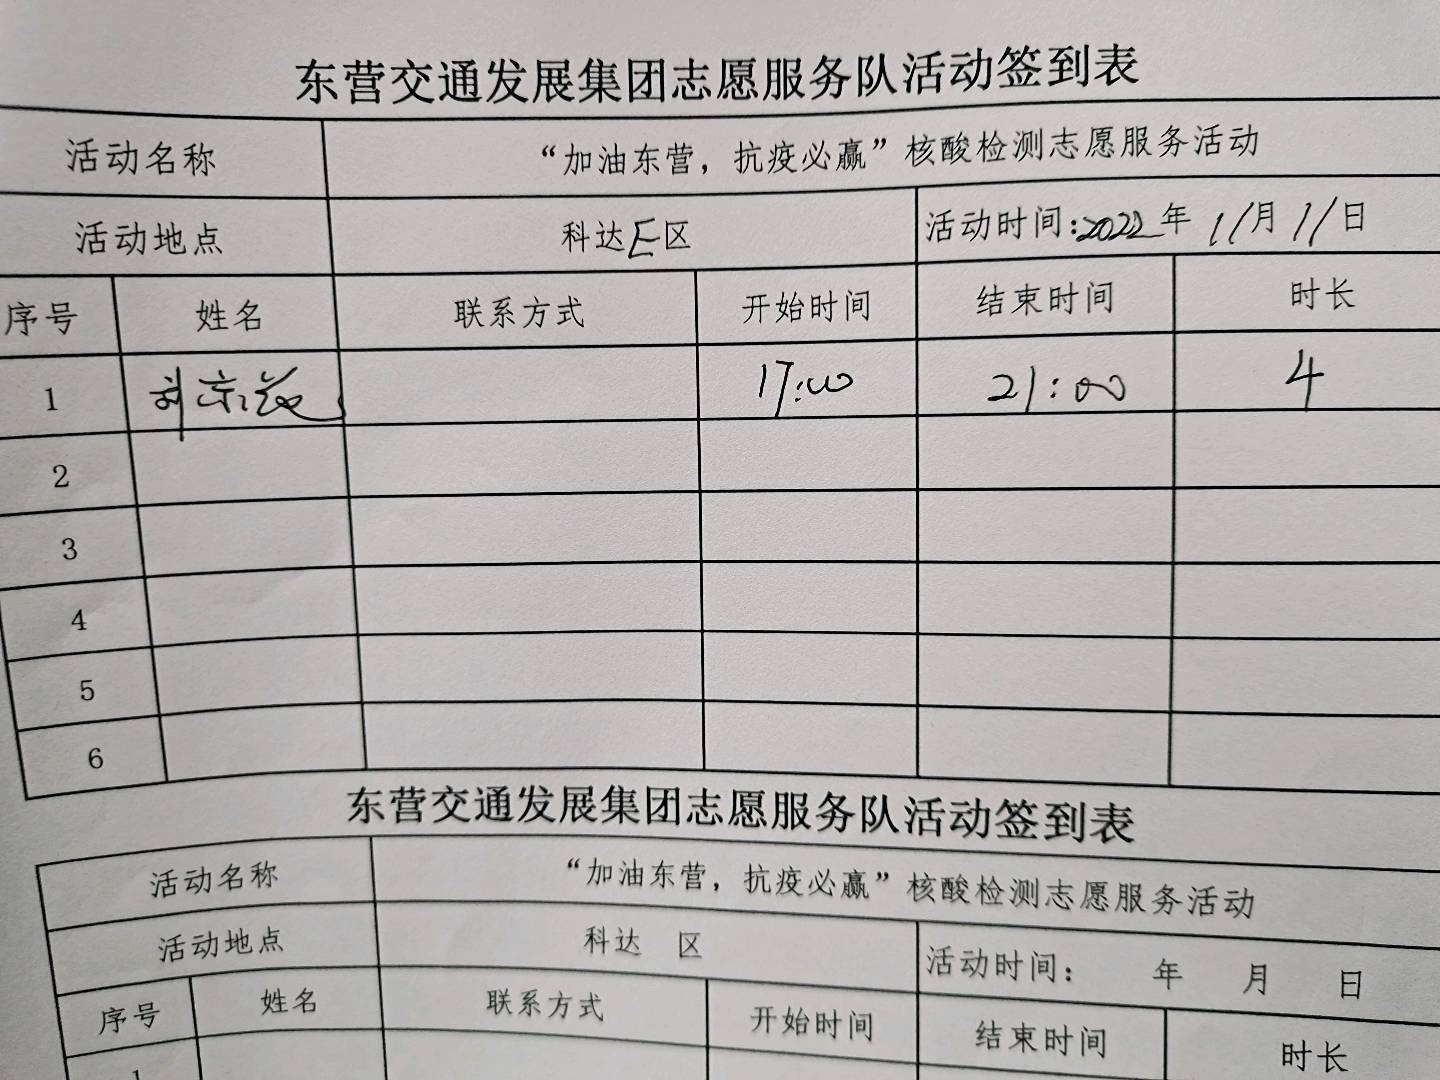 东营交通发展集团志愿服务队活动签到表
活动名称 “加油东营，抗疫必赢”核酸检测志愿服务活动
活动地点 科达E区 活动时间：2022年11月11日
序号 姓名 联系方式 开始时间 结束时间 时长
1 刘 17:00 21:00 4
2
3
4
5
6
东营交通发展集团志愿服务队活动签到表
活动名称 “加油东营，抗疫必赢”核酸检测志愿服务活动
活动地点 科达 区 活动时间： 年 月 日
序号 姓名 联系方式 开始时间 结束时间 时长
1